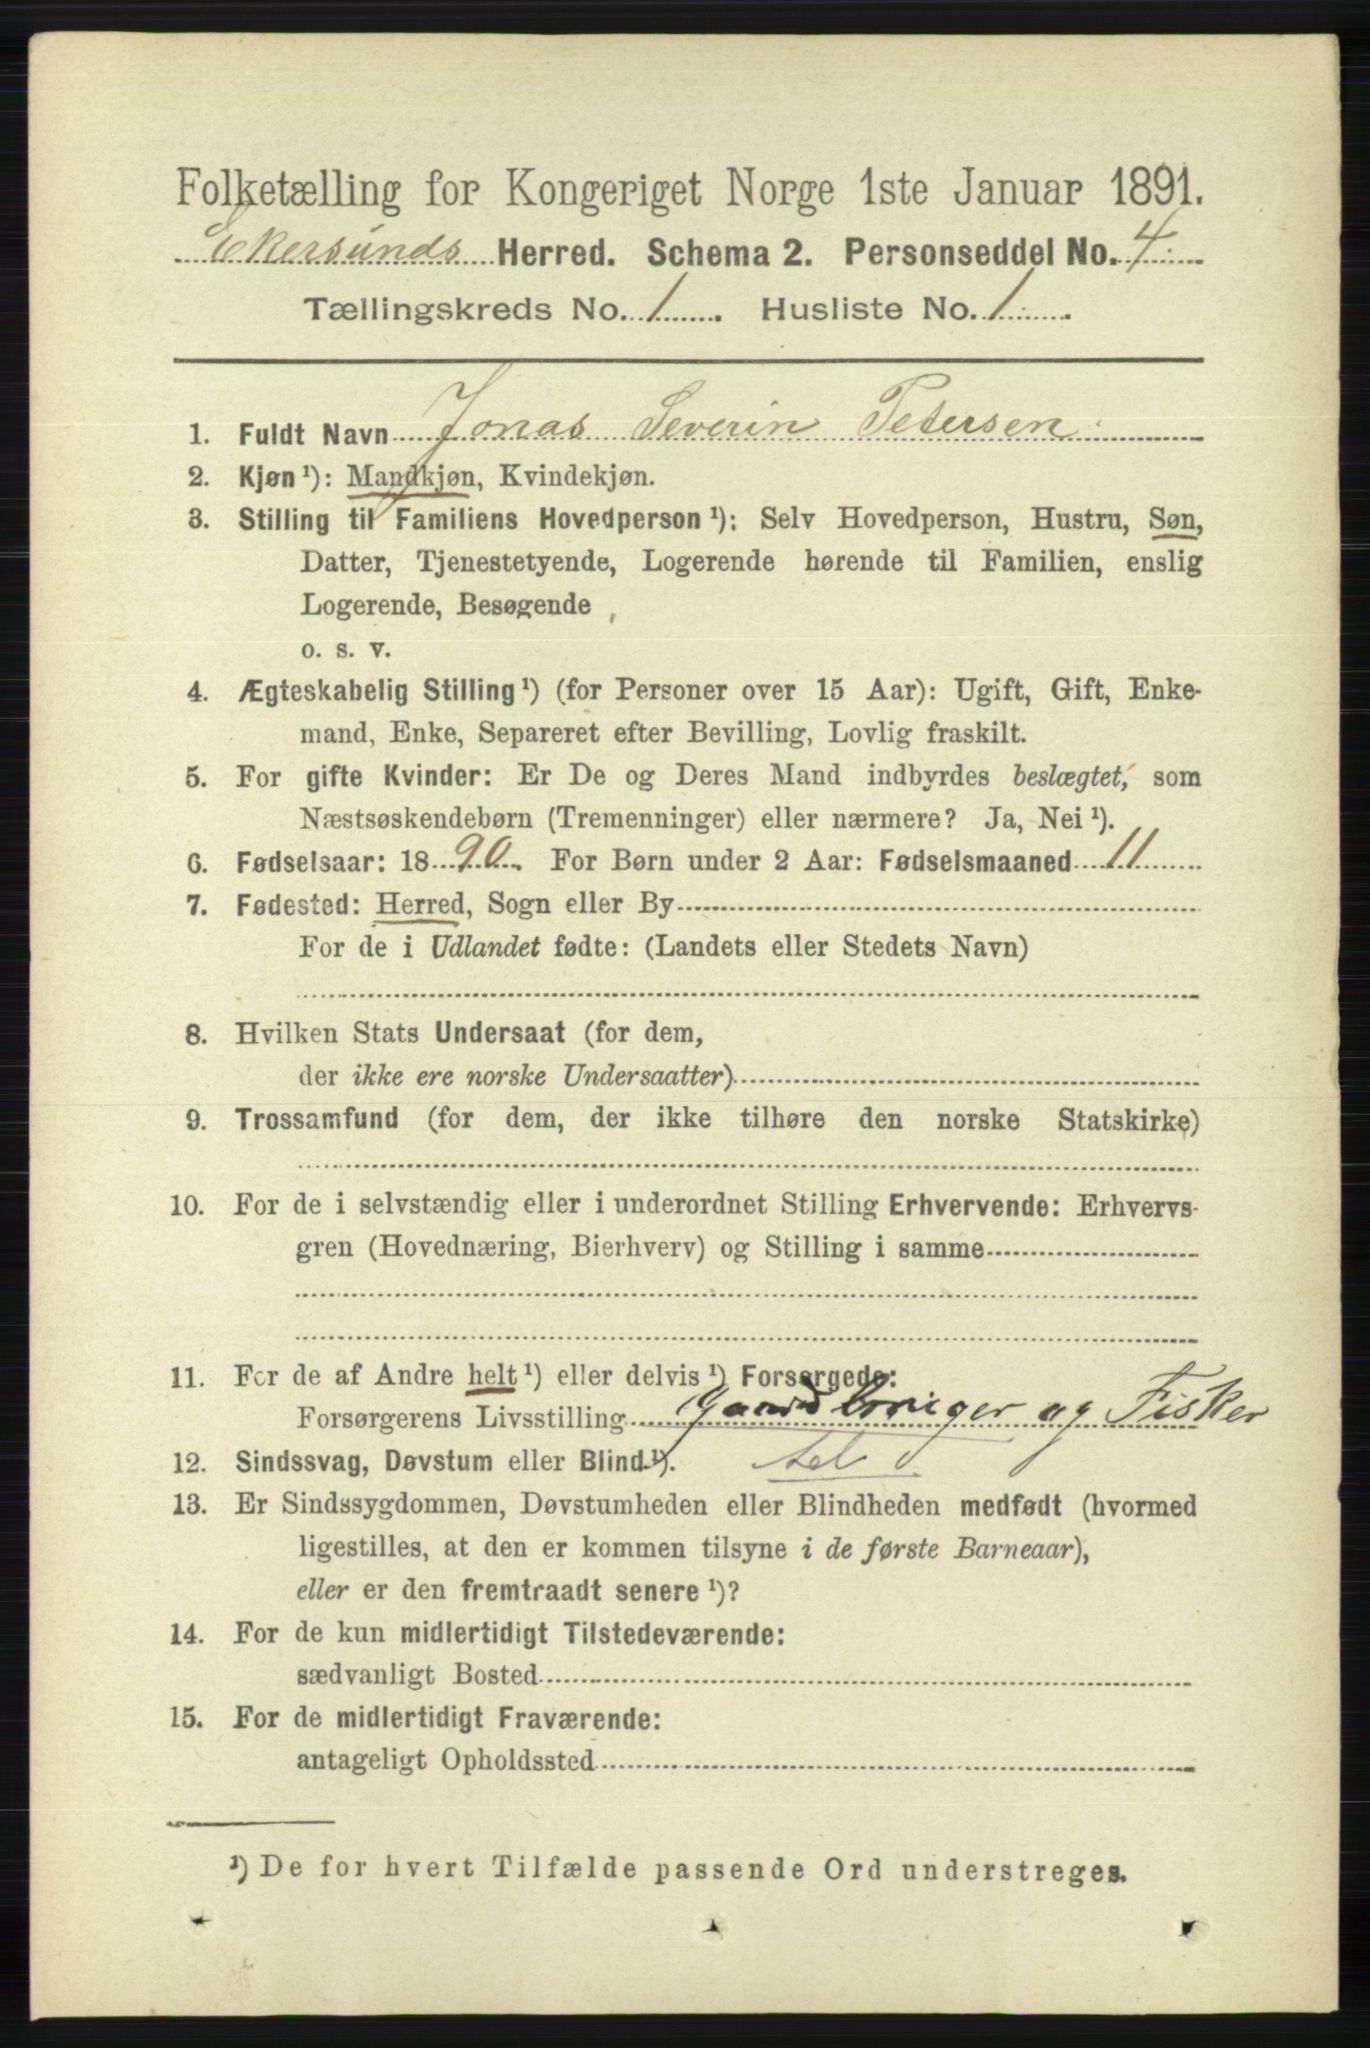 Folketælling for Kongeriget Norge 1ste Januar 1891.
Ekersunds Herred. Schema 2. Personseddel No. 4
Tællingskreds No. 1. Husliste No. 1.
1. Fuldt Navn Jonas Severin Petersen
2. Kjøn ¹): Mandkjøn, Kvindekjøn.
3. Stilling til Familiens Hovedperson ¹): Selv Hovedperson, Hustru, Søn,
Datter, Tjenestetyende, Logerende hørende til Familien, enslig
Logerende, Besøgende
o. s. v.
4. Ægteskabelig Stilling ¹) (for Personer over 15 Aar): Ugift, Gift, Enke-
mand, Enke, Separeret efter Bevilling, Lovlig fraskilt.
5. For gifte Kvinder: Er De og Deres Mand indbyrdes beslægtet, som
Næstsøskendebørn (Tremenninger) eller nærmere? Ja, Nei ¹).
6. Fødselsaar: 1890. For Børn under 2 Aar: Fødselsmaaned 11
7. Fødested: Herred, Sogn eller By
For de i Udlandet fødte: (Landets eller Stedets Navn)
8. Hvilken Stats Undersaat (for dem,
der ikke ere norske Undersaatter)
9. Trossamfund (for dem, der ikke tilhøre den norske Statskirke)
10. For de i selvstændig eller i underordnet Stilling Erhvervende: Erhvervs-
gren (Hovednæring, Bierhverv) og Stilling i samme
11. For de af Andre helt ¹) eller delvis ¹) Forsørgede:
Forsørgerens Livsstilling Gaardbruger og Fisker
12. Sindssvag, Døvstum eller Blind ¹). sel
13. Er Sindssygdommen, Døvstumheden eller Blindheden medfødt (hvormed
ligestilles, at den er kommen tilsyne i de første Barneaar),
eller er den fremtraadt senere ¹)?
14. For de kun midlertidigt Tilstedeværende:
sædvanligt Bosted
15. For de midlertidigt Fraværende:
antageligt Opholdssted
¹) De for hvert Tilfælde passende Ord understreges.